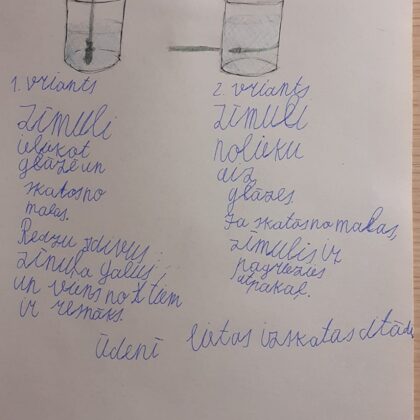 1. vriants
Zīmuli
ielokot
glāzē un
skatos no
malas.
Redzu divus
zīmuļa galus,
un viens no tiem
ir resnāks.
2. vriants
Zīmuli
nolieku
aiz
glāzes
Ja skatos no malas,
zīmulis ir
pagriezies
atpakaļ.
Ūdenī lietas izskatas citād